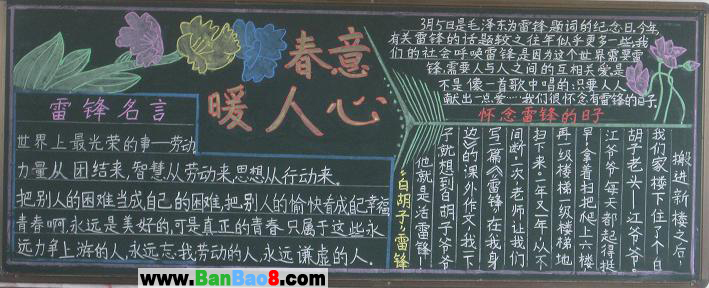 春意
暖人心
雷锋名言
世界上最光荣的事—劳动
力量从团结来,智慧从劳动来,思想从行动来.
把别人的困难当成自己的困难,把别人的愉快看成自己幸福
青春啊,永远是美好的,可是真正的青春只属于这些永
远力争上游的人,永远忘我劳动的人,永远谦虚的人.
3月5日是毛泽东为雷锋题词的纪念日.今年,
有关雷锋的话题较之往年似乎更多一些.我
们的社会呼唤雷锋,是因为这个世界需要雷
锋,需要人与人之间的互相关爱.是
不是像一首歌中唱的:只要人人
献出一点爱……我们很怀念有雷锋的日子.
怀念雷锋的日子
"白胡子"雷锋
搬进新楼之后,
我们家楼下住了个白
胡子老头—江爷爷.
江爷爷每天都起得挺
早,拿着扫把爬上六楼
再一级楼梯一级楼梯地
扫下来.一年又一年,从不
间断.一次老师让我们
写一篇《雷锋在我身
边》的课外作文,我一下
子就想到白胡子爷爷
他就是活雷锋!
www.BanBao8.com